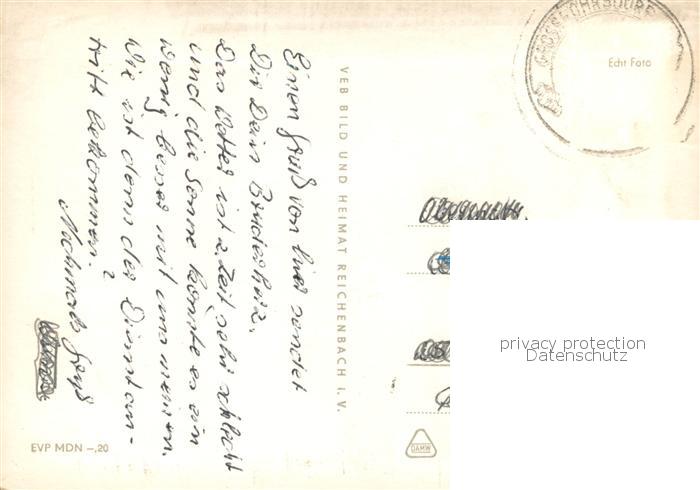 Einen Gruß von hier sendet
Dir Dein Bruderherz.
Das Wetter ist z. Zeit sehr schlecht
und die Sonne könnte es ein
wenig besser mit uns meinen.
Wie ist denn der Dienst an-
tritt bekommen?
Nochmals Gruß
VEB BILD UND HEIMAT REICHENBACH i. V.
EVP MDN –,20
Echt Foto
DAMW
privacy protection
Datenschutz